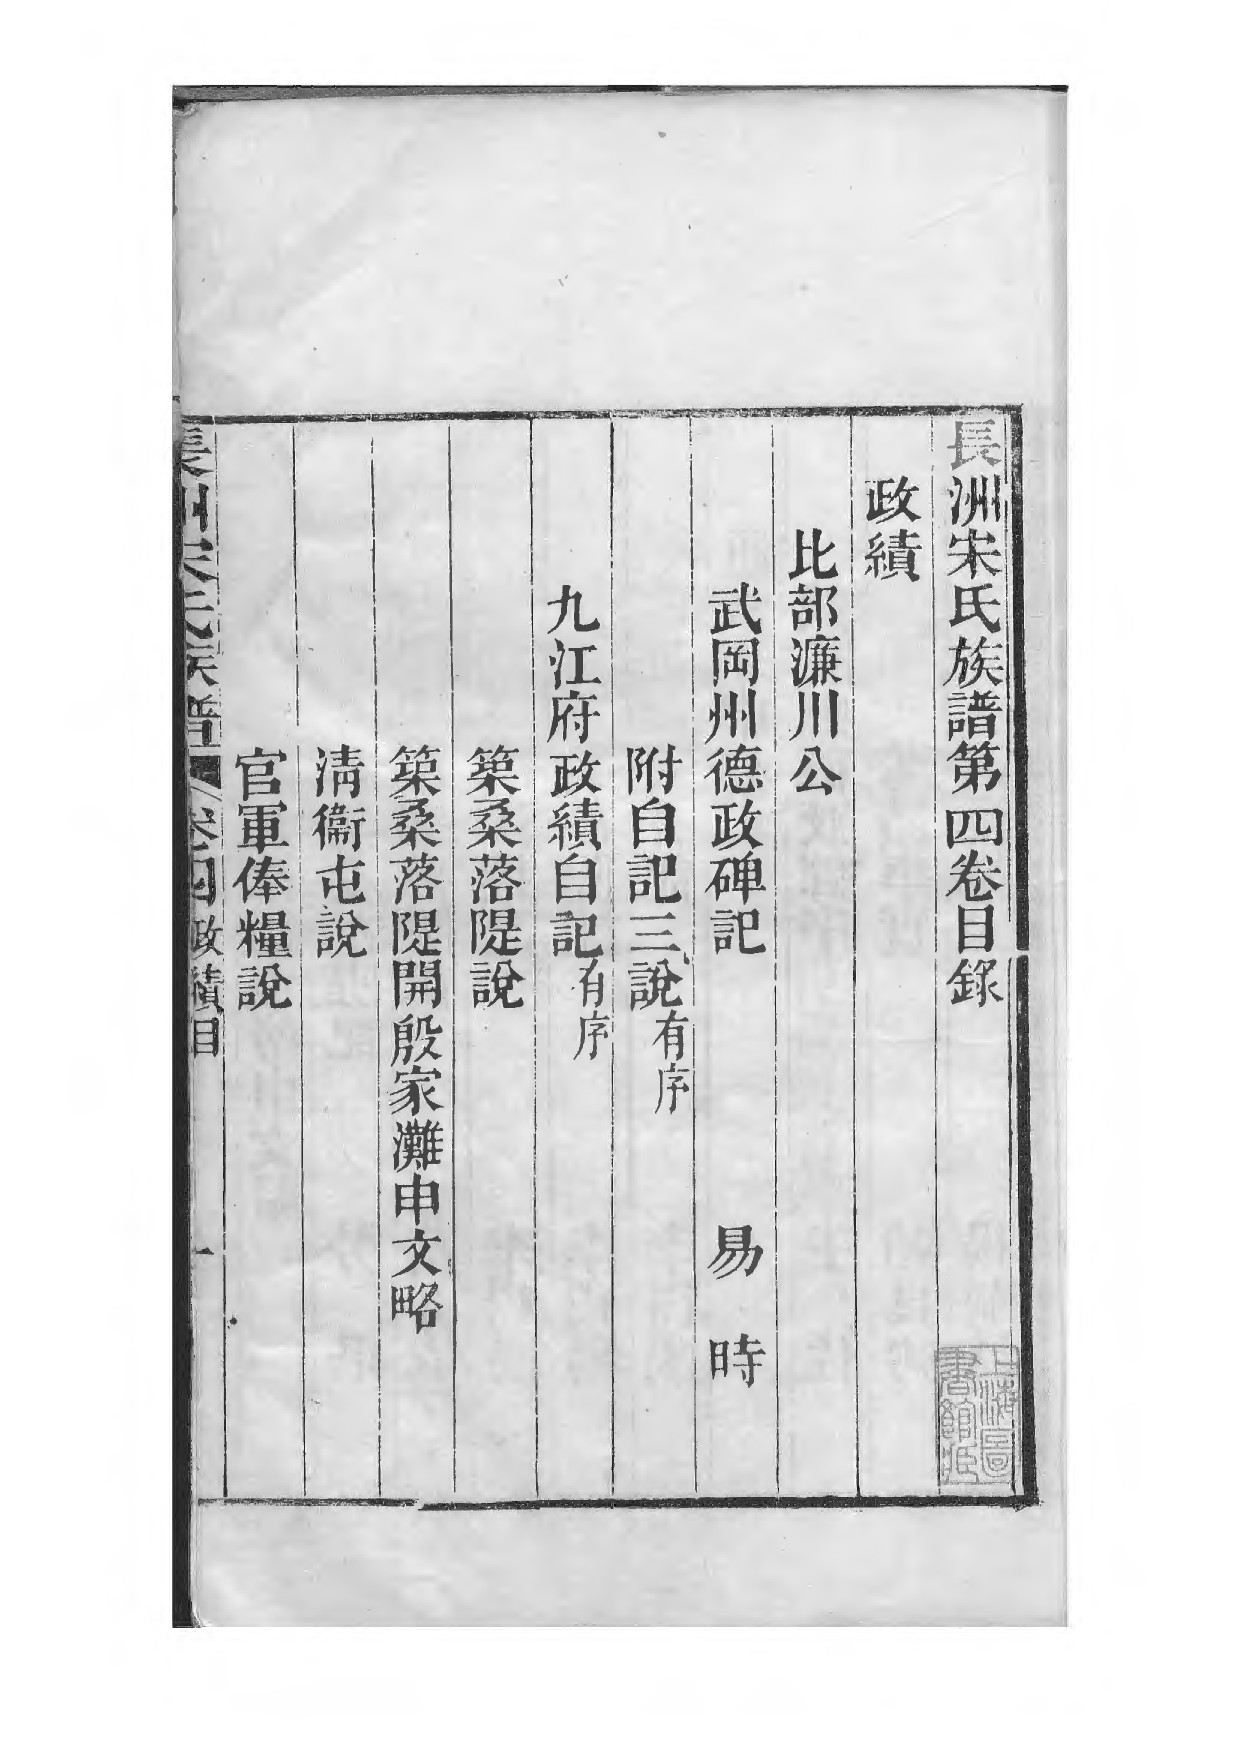 長洲宋氏族譜第四卷目錄
政績
比部濂川公
武岡州德政碑記 易時
附自記三說有序
九江府政績自記有序
築桑落隄說
築桑落隄開殷家灘申文略
清衞屯說
官軍俸糧說
長洲宋氏族譜 卷四政績目 一
上海圖書館藏